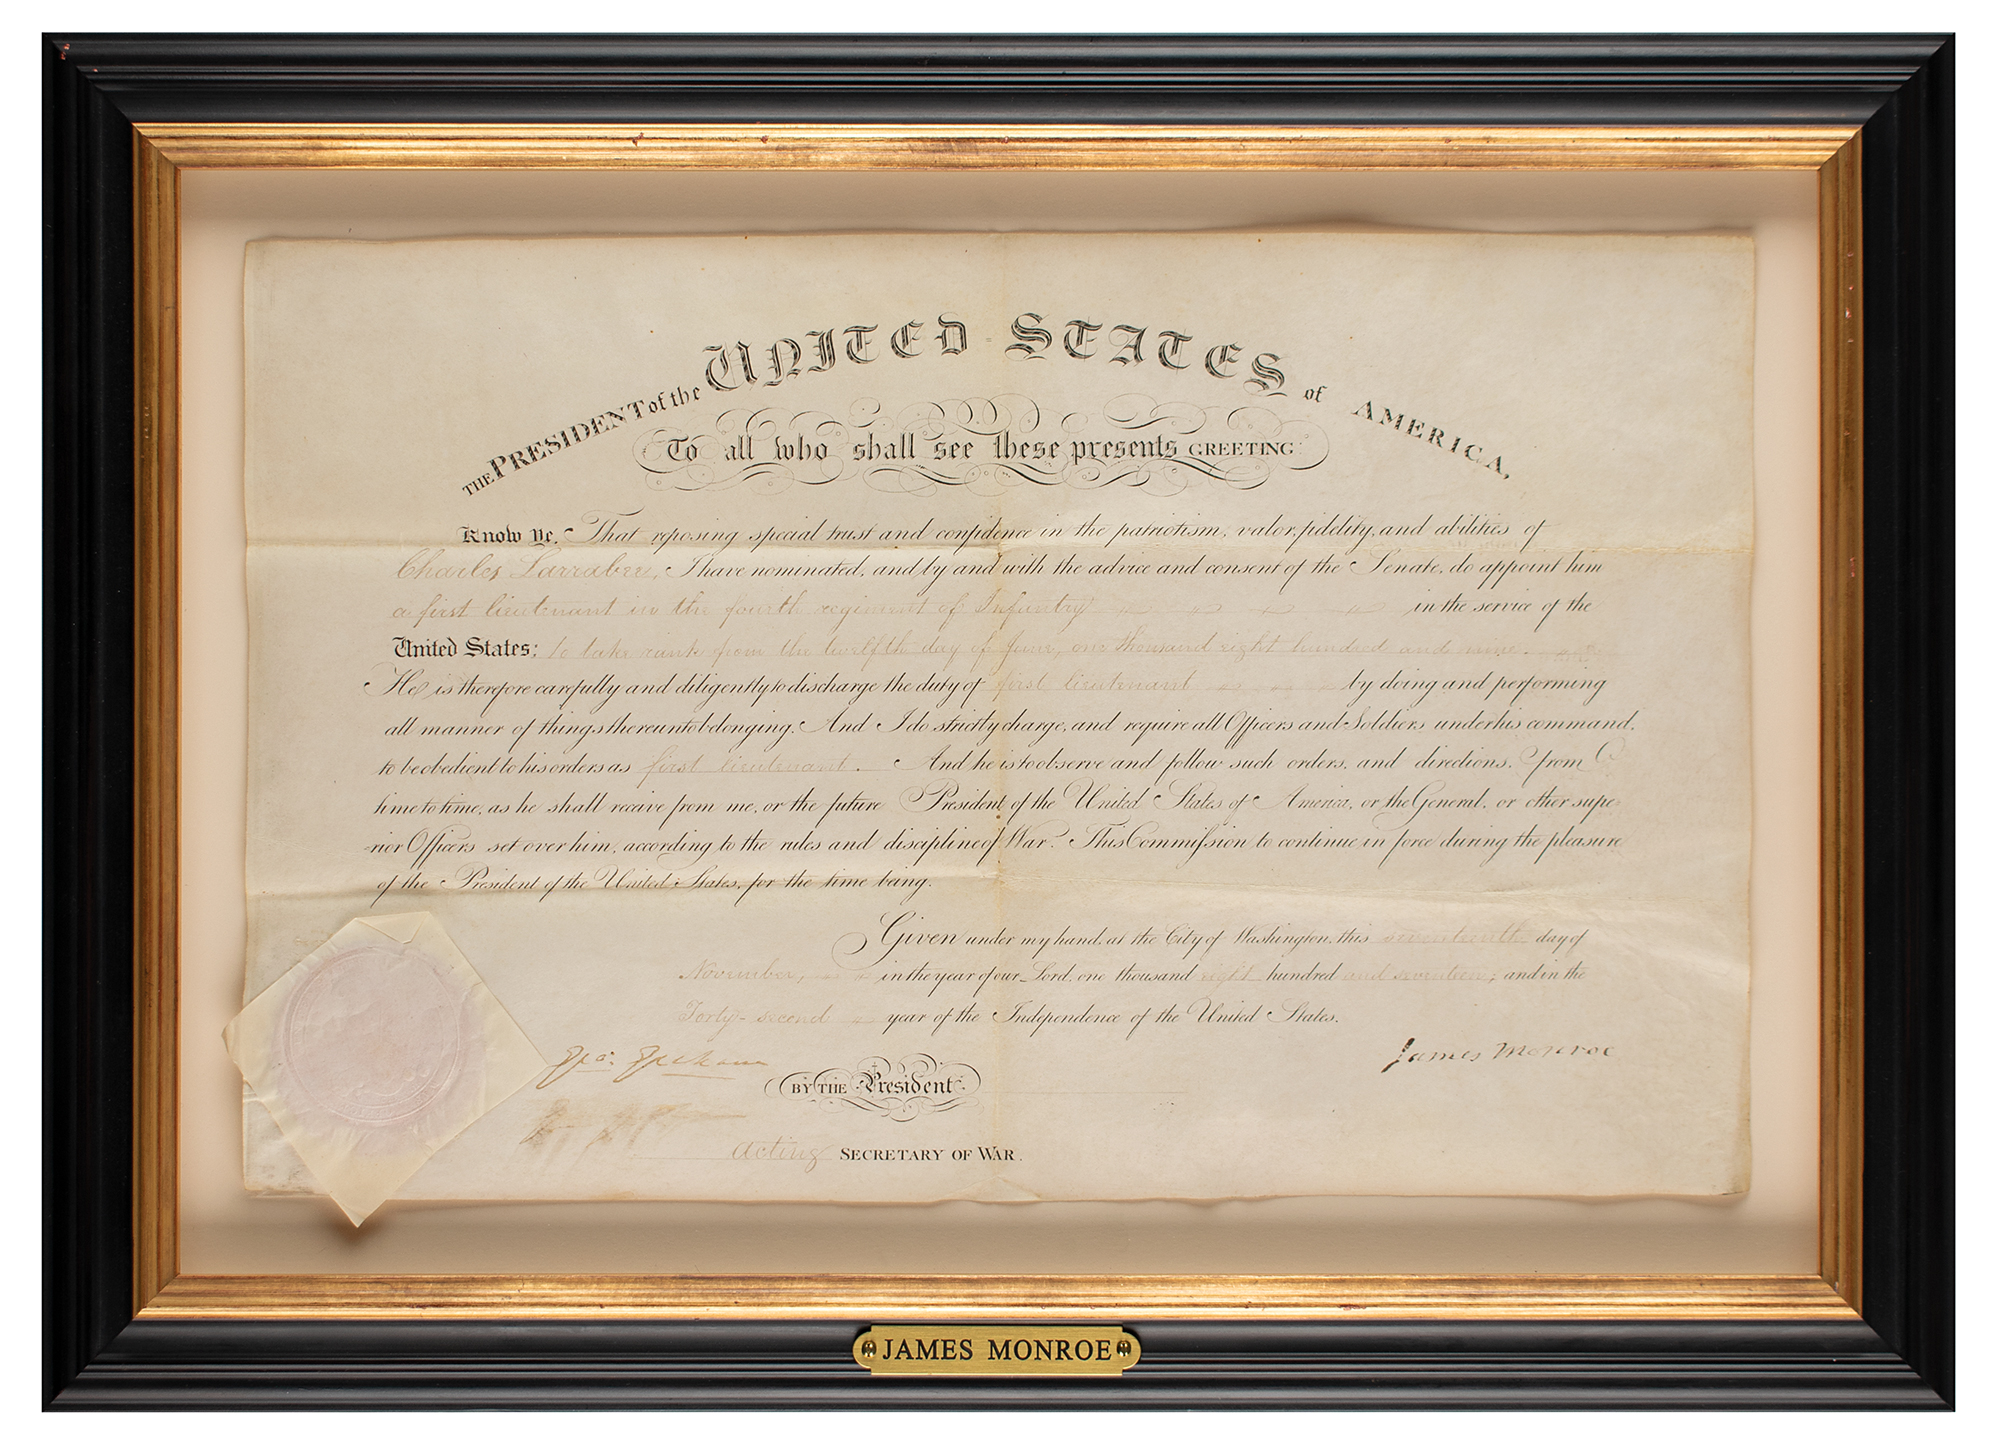 THE PRESIDENT of the UNITED STATES of AMERICA,
To all who shall see these presents GREETING:
Know Ye, That reposing special trust and confidence in the patriotism, valor, fidelity, and abilities of
Charles Larrabee, I have nominated, and by and with the advice and consent of the Senate, do appoint him
a first lieutenant in the fourth regiment of Infantry in the service of the
United States: to take rank from the twelfth day of June, one thousand eight hundred and nine.
He is therefore carefully and diligently to discharge the duty of first lieutenant by doing and performing
all manner of things thereunto belonging. And I do strictly charge, and require all Officers and Soldiers under his command,
to be obedient to his orders as first lieutenant. And he is to observe and follow such orders, and directions, from
time to time, as he shall receive from me, or the future President of the United States of America, or the General, or other supe-
rior Officers set over him, according to the rules and discipline of War. This Commission to continue in force during the pleasure
of the President of the United States, for the time being.
Given under my hand, at the City of Washington, this seventeenth day of
November, in the year of our Lord, one thousand eight hundred and seventeen; and in the
Forty-second year of the Independence of the United States.
Geo: Graham
James Monroe
BY THE President
acting SECRETARY OF WAR.
JAMES MONROE